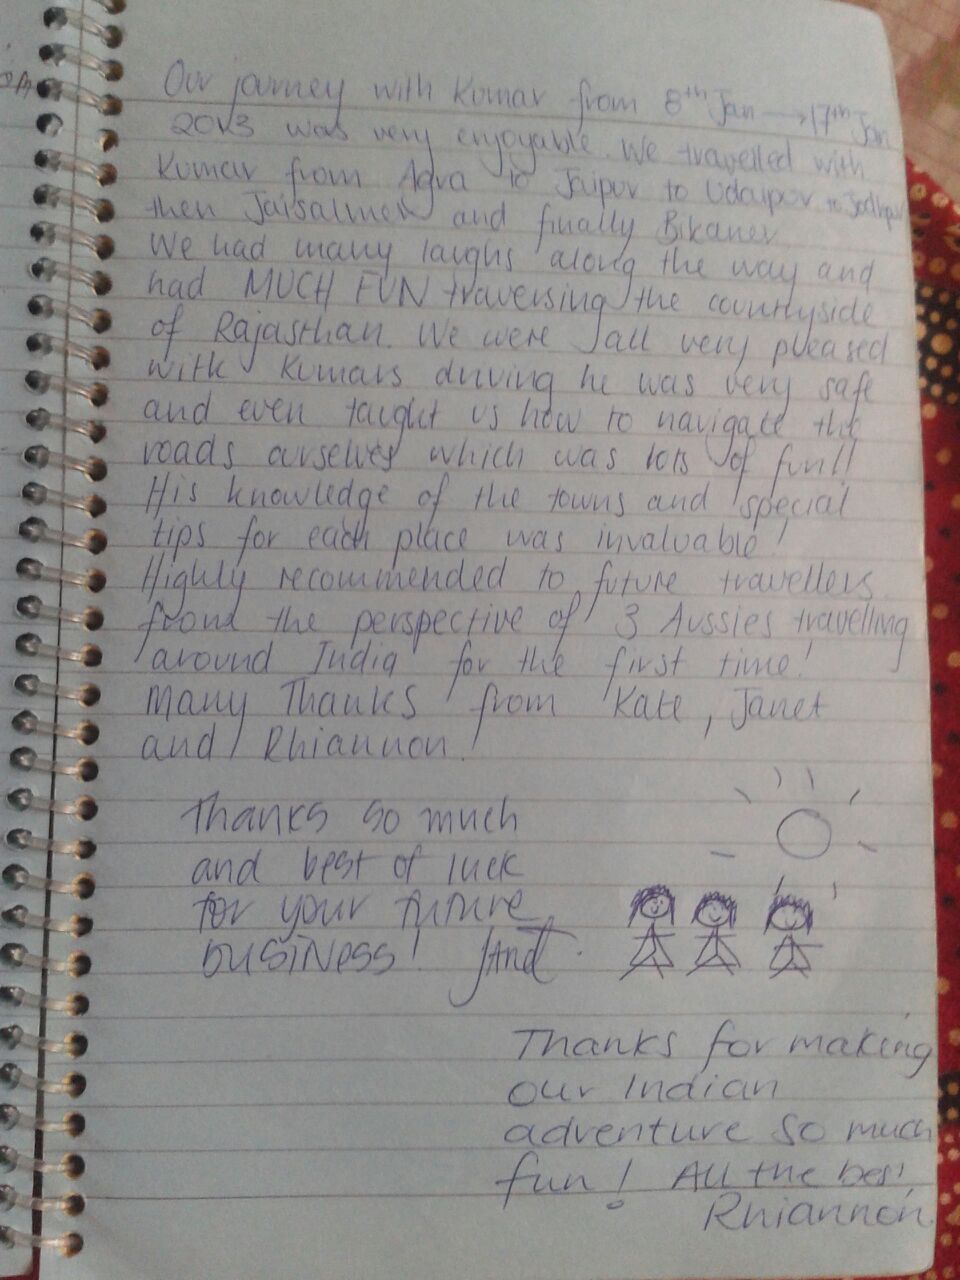 Our journey with Kumar from 8th Jan → 17th Jan
2013 was very enjoyable. We travelled with
Kumar from Agra to Jaipur to Udaipur to Jodhpur
then Jaisalmer and finally Bikaner
We had many laughs along the way and
had MUCH FUN traversing the countryside
of Rajasthan. We were all very pleased
with Kumars driving he was very safe
and even taught us how to navigate the
roads ourselves which was lots of fun!!
His knowledge of the towns and special
tips for each place was invaluable!
Highly recommended to future travellers
from the perspective of 3 Aussies travelling
around India for the first time!
Many Thanks from Kate, Janet
and Rhiannon!
Thanks so much
and best of luck
for your future
business!
Thanks for making
our Indian
adventure so much
fun! All the best,
Rhiannon